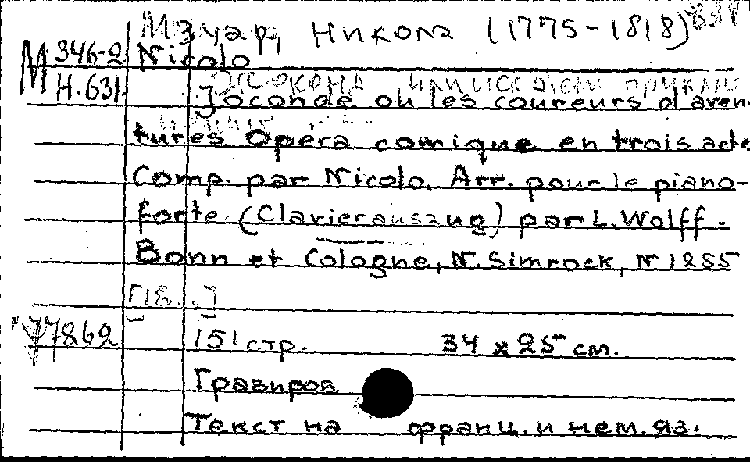 Изуар, Никола (1775-1818)
М 346-2 Nicolo
Н.631
Joconde ou les coureurs d'aven-
tures Opéra comique en trois acte
Comp. par Nicolo. Arr. pour le piano-
forte (Clavierauszug) par L. Wolff.
Bonn et Cologne, N. Simrock, N 1285
[18..]
77862 151 стр. 34 x 25 см.
Гравиров
Текст на франц. и нем. яз.